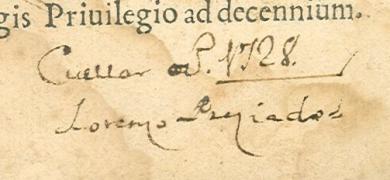 gis Priuilegio ad decennium.
Cuellar P. 1728.
Lorenzo Preciados